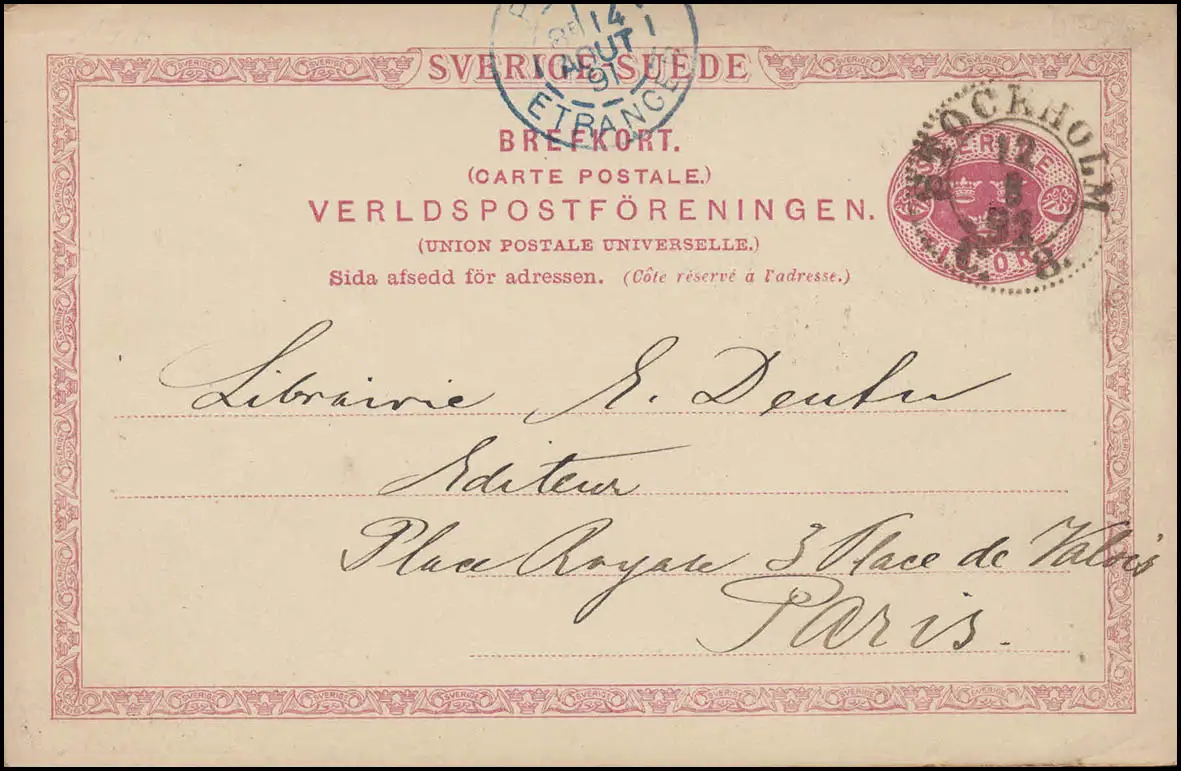 14
AOUT
91
ETRANGER
SVERIGE SUEDE
BREFKORT.
(CARTE POSTALE.)
VERLDSPOSTFÖRENINGEN.
(UNION POSTALE UNIVERSELLE.)
Sida afsedd för adressen. (Côte réservé à l'adresse.)
STOCKHOLM
12
8
91
C. 8.
SVERIGE
ÖRE
Librairie E. Dentu
Editeur
Place Royale 3 Place de Valois
Paris.